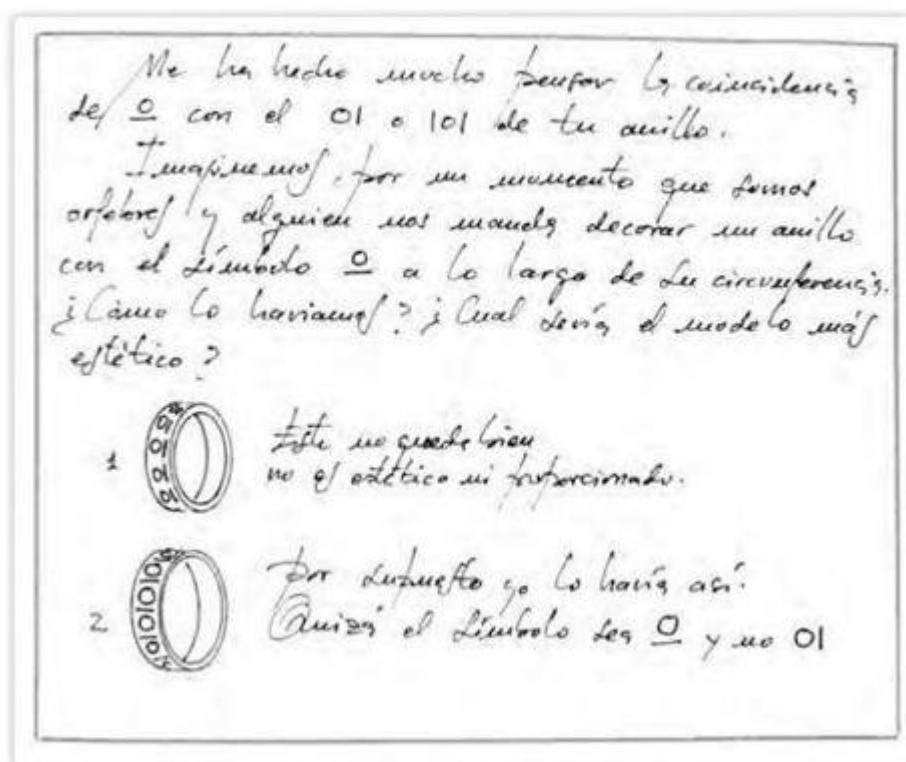 Me ha hecho mucho pensar la coincidencia
del O̲ con el 01 o 101 de tu anillo.
Imaginemos, por un momento que somos
orfebres y alguien nos manda decorar un anillo
con el símbolo O̲ a lo largo de su circunferencia.
¿Cómo lo havíamos? ¿Cual sería el modelo más
estético?
1 Este no queda bien
no es estético ni proporcionado.
2 Por supuesto yo lo havía así.
Quizá el símbolo sea O̲ y no 01